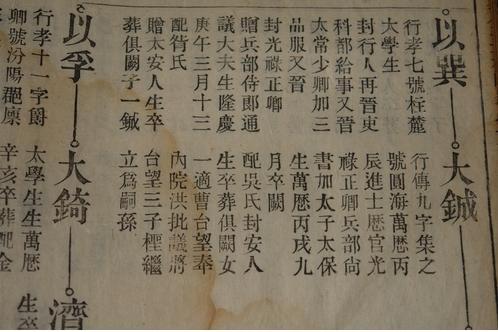 以巽
大鋮
行孝七號桂麓
大學生
封行人再晉吏
科都給事又晉
太常少卿加三
品服又晉
封光祿正卿
贈兵部侍郎通
議大夫生隆慶
庚午三月十三
配胥氏
贈太安人生卒
葬俱闕子一鋮
行傳九字集之
號圓海萬厯丙
辰進士厯官光
祿正卿兵部尚
書加太子太保
生萬厯丙戌九
月卒闕
配吳氏封安人
生卒葬俱闕女
一適曹台望奉
內院洪批議將
台望三子𣚴繼
立爲嗣孫
以孚
大錡
濟
行孝十一字爵
卿號汾陽邑廩
太學生生萬厯
辛亥卒葬配金
生卒